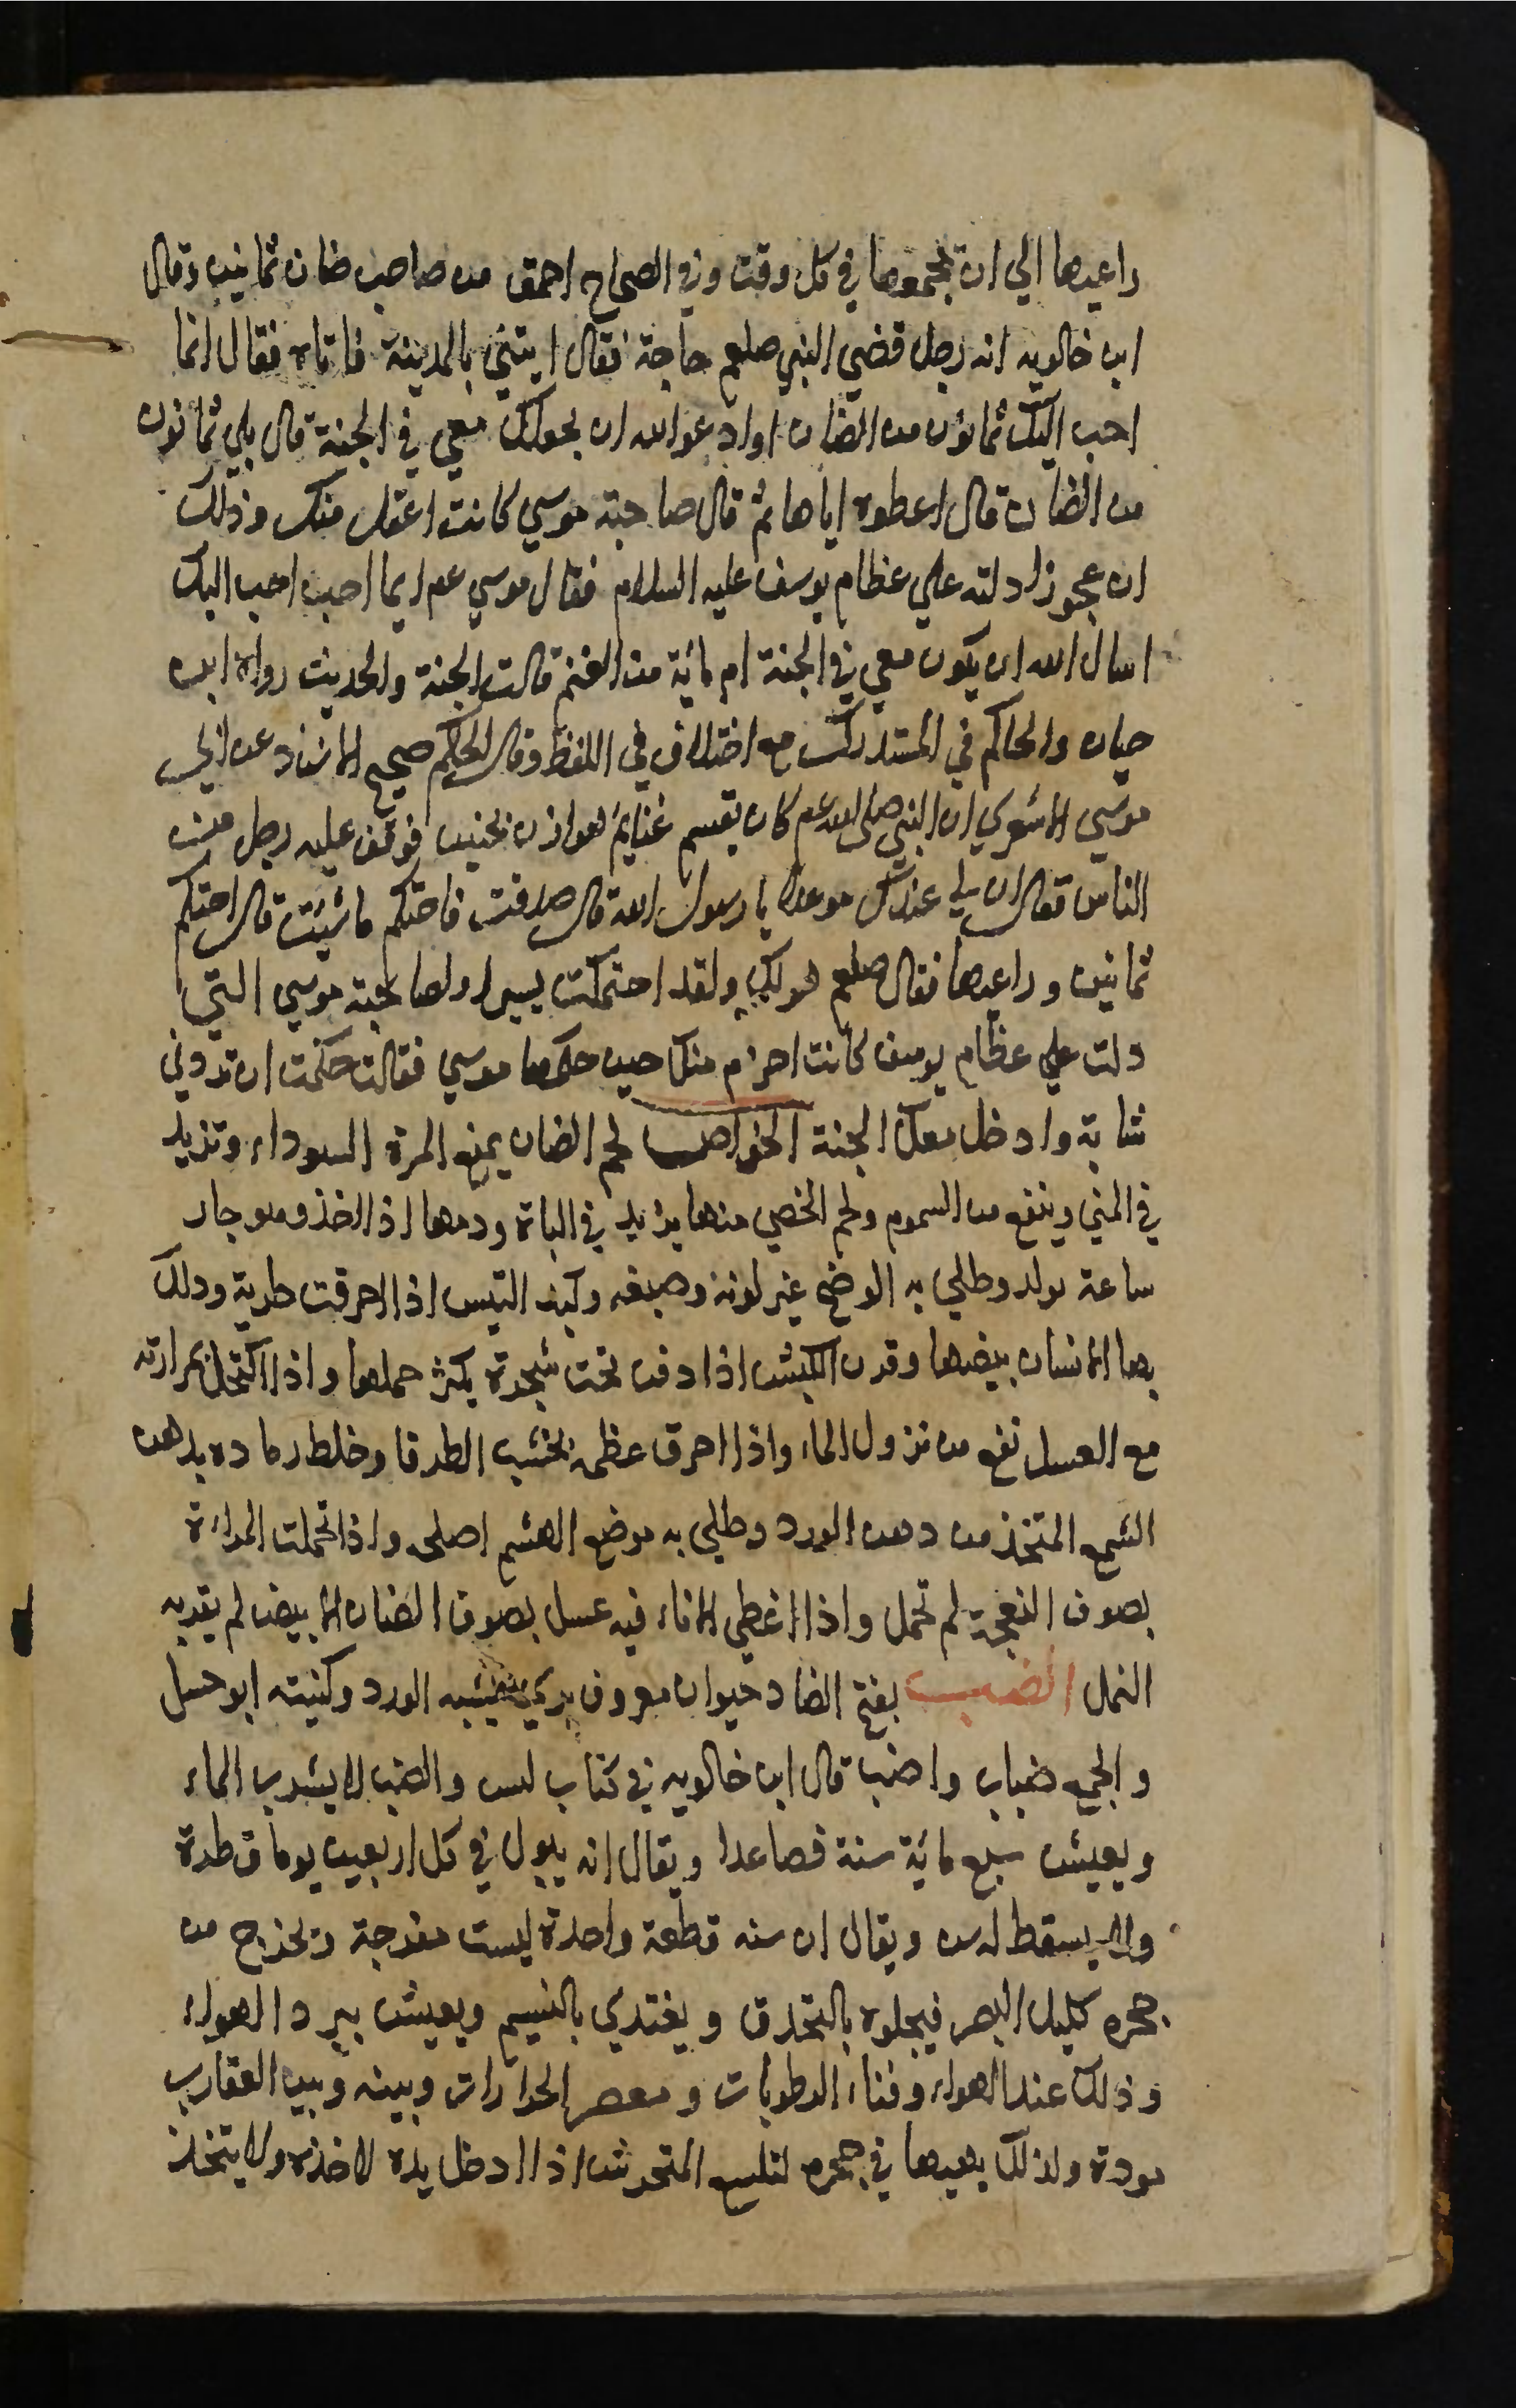 راعيها الي ان يجمعها في كل وقت وفي الصحاح احمق من صاحب ضان ثمانين وقال
ابن خالويه انه رجل قضي النبي صلعم حاجة فقال ايتني بالمدينة فاتاه فقال انما
احب اليك ثمانون من الضان او ادعو الله ان يجعلك معي في الجنة قال بلي ثمانون
من الضان قال اعطوه اياها ثم قال صاحبة موسي كانت اعقل منك وذلك
ان عجوزا دلته علي عظام يوسف عليه السلام فقال موسي عم ايما احب احب اليك
اسال الله ان يكون معي في الجنة ام مائة من الغنم قالت الجنة والحديث رواه ابن
حبان والحاكم في المستدرك مع اختلاف في اللفظ وقال الحاكم صحيح الاسناد عن ابي
موسي الاشعري ان النبي صلي الله عم كان يقسم غنايم هوازن بحنين فوقف عليه رجل من
الناس فقال ان لي عندك موعدا يا رسول الله قال صدقت فاحتكم ما شيت قال احتكم
ثمانين وراعيها فقال صلعم هو لك ولقد احتكمت يسيرا ولصاحبة موسي التي
دلت علي عظام يوسف كانت احزم منك حين حكمها موسي فقالت حكمت ان تردني
شابة وادخل معك الجنة الخواص لحم الضان يمنع المرة السوداء وتزيد
في المني وينفع من السموم ولحم الخصي منها يزيد في الباة ودمها اذا اخذ وهو حار
ساعة يولد وطلي به الوضح غير لونه وصبغه وكبد التيس اذا احرقت طرية ودلك
بها الانسان بيضها وقرن الكبش اذا دفن تحت شجرة يكثر حملها واذا اكتحل بمرارته
مع العسل نفع من نزول الماء واذا احرق عظمه بخشب الطرفا وخلط رماده بدهن
الشمع المتخذ من دهن الورد وطلي به موضع الهشم اصلحه واذا تحملت المراءة
بصوف النعجة لم تحمل واذا اغطي الاناء فيه عسل بصوف الضان الابيض لم يقربه
النمل الضب بفتح الضاد حيوان معروف بري يشبه الورد وكنيته ابو حسل
والجمع ضباب واضب قال ابن خالويه في كتاب ليس والضب لا يشرب الماء
ويعيش سبع مائة سنة فصاعدا ويقال انه يبول في كل اربعين يوما قطرة
ولا يسقط له سن ويقال ان سنه قطعة واحدة ليست مفرجة وتخرج من
جحره كليل البصر فيجلوه بالتحدق ويغتدي بالنسيم ويعيش ببرد الهواء
وذلك عند الهواء وفناء الرطوبات ومعصر الحرارات وبينه وبين العقارب
مودة ولذلك يهيها في جحره لتلسع المتحرش اذا ادخل يده لاخذه ولا يتخذ